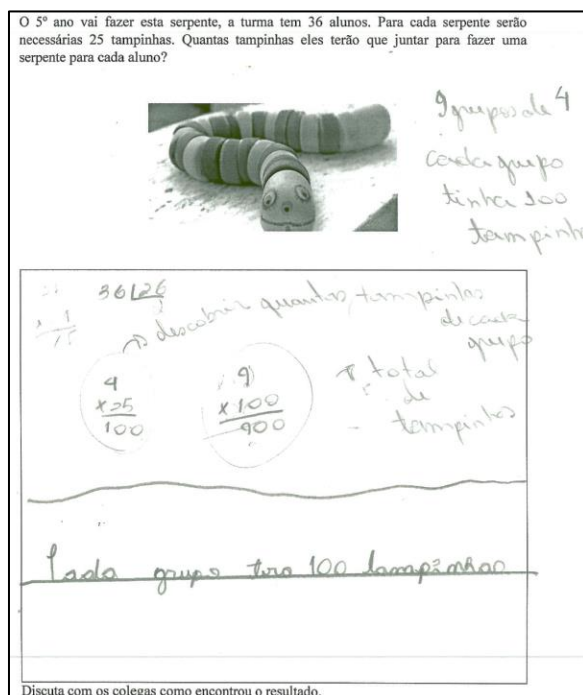 O 5º ano vai fazer esta serpente, a turma tem 36 alunos. Para cada serpente serão
necessárias 25 tampinhas. Quantas tampinhas eles terão que juntar para fazer uma
serpente para cada aluno?
9 grupos de 4
cada grupo
tinha 100
tampinh
36
descobrir quantas tampinhas
de cada
grupo
4
x 25
100
9
x 100
900
total
de
tampinhas
grupo 100
Discuta com os colegas como encontrou o resultado.